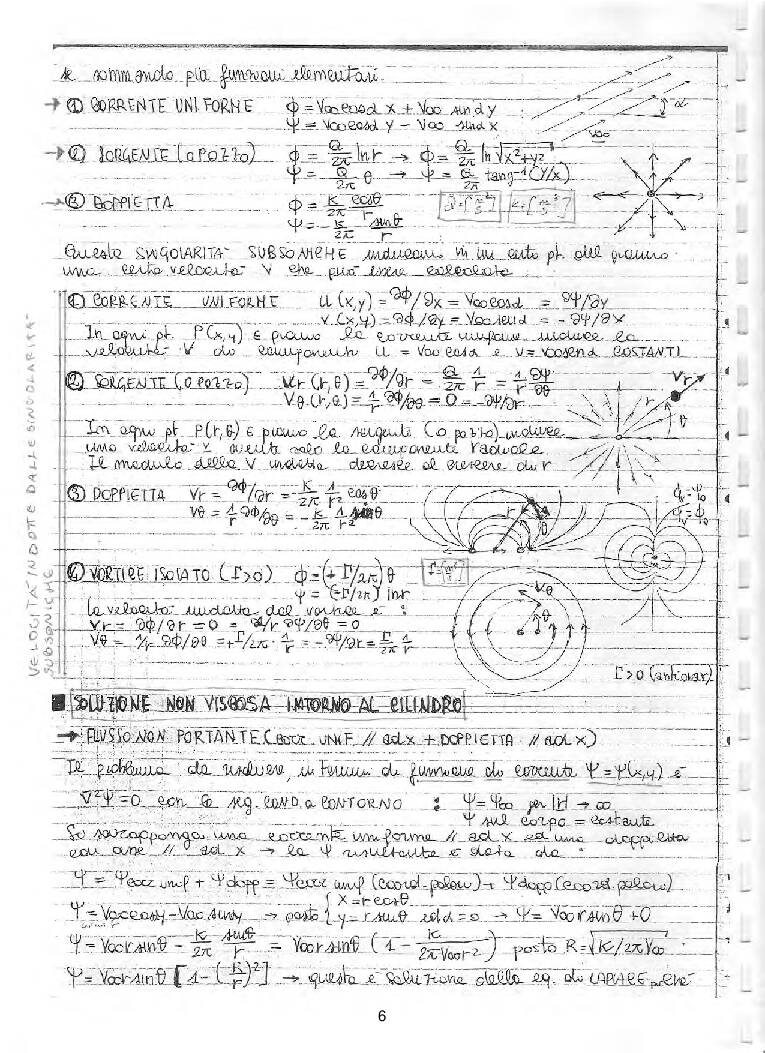 se sommando più funzioni elementari.
→ ① CORRENTE UNIFORME φ = V∞ cosα x + V∞ sinα y
ψ = V∞ cosα y - V∞ sinα x
α
V∞
→ ② SORGENTE (O POZZO) φ = Q/2π ln r → φ = Q/2π ln √x²+y²
ψ = Q/2π θ → ψ = Q/2π tang⁻¹(y/x)
→ ③ DOPPIETTA φ = K/2π cosθ/r Q=[m²/s] K=[m³/s]
ψ = - K/2π sinθ/r
Queste SINGOLARITA' SUBSONICHE inducono in un certo pt. del piano
una certa velocità V che può essere calcolata
VELOCITA' INDOTTE DALLE SINGOLARITA'
SUBSONICHE
① CORRENTE UNIFORME u(x,y) = ∂φ/∂x = V∞cosα = ∂ψ/∂y
v(x,y) = ∂φ/∂y = V∞senα = -∂ψ/∂x
In ogni pt. P(x,y) ∈ piano la corrente uniforme induce la
velocità V di componenti u = V∞cosα e v = V∞senα COSTANTI
② SORGENTE (O POZZO) Vr(r,θ) = ∂φ/∂r = Q/2π 1/r = 1/r ∂ψ/∂θ
Vθ(r,θ) = 1/r ∂φ/∂θ = 0 = -∂ψ/∂r
Vr
r
θ
In ogni pt P(r,θ) ∈ piano la sorgente (o pozzo) induce
una velocità V avente solo la componente radiale
Il modulo della V indotta decresce al crescere di r
③ DOPPIETTA Vr = ∂φ/∂r = - K/2π 1/r² cosθ
Vθ = 1/r ∂φ/∂θ = - K/2π 1/r² sinθ
r
θ
④ VORTICE ISOLATO (Γ>0) φ = (+Γ/2π)θ Γ=[m²/s]
ψ = (-Γ/2π) ln r
la velocità indotta dal vortice è :
Vr = ∂φ/∂r = 0 = 1/r ∂ψ/∂θ = 0
Vθ = 1/r ∂φ/∂θ = +Γ/2π · 1/r = -∂ψ/∂r = Γ/2π 1/r
Vθ
θ
Γ>0 (antiorar)
SOLUZIONE NON VISCOSA INTORNO AL CILINDRO
→ FLUSSO NON PORTANTE (corr. UNIF // ad x + DOPPIETTA // ad x)
Il problema da risolvere, in termini di funzione di corrente ψ = ψ(x,y) è
∇²ψ = 0 con le seg. COND. a CONTORNO : ψ = ψ∞ per |r| → ∞
ψ sul corpo = costante
Si sovrapponga una corrente uniforme // ad x ed una doppietta
con asse // ad x → la ψ risultante è data da :
ψ = ψcorr unif + ψdopp = ψcorr unif (coord. polari) + ψdopp (coord. polari)
ψ = V∞cosαy - V∞ sinαx → posto {x = r cosθ
y = r sinθ ed α = 0 → ψ = V∞ r sinθ + 0
ψ = V∞ r sinθ - K/2π sinθ/r = V∞ r sinθ (1 - K/2πV∞r²) posto R = √K/2πV∞
ψ = V∞ r sinθ [1 - (R/r)²] → questa è soluzione della eq. di LAPLACE perché
6